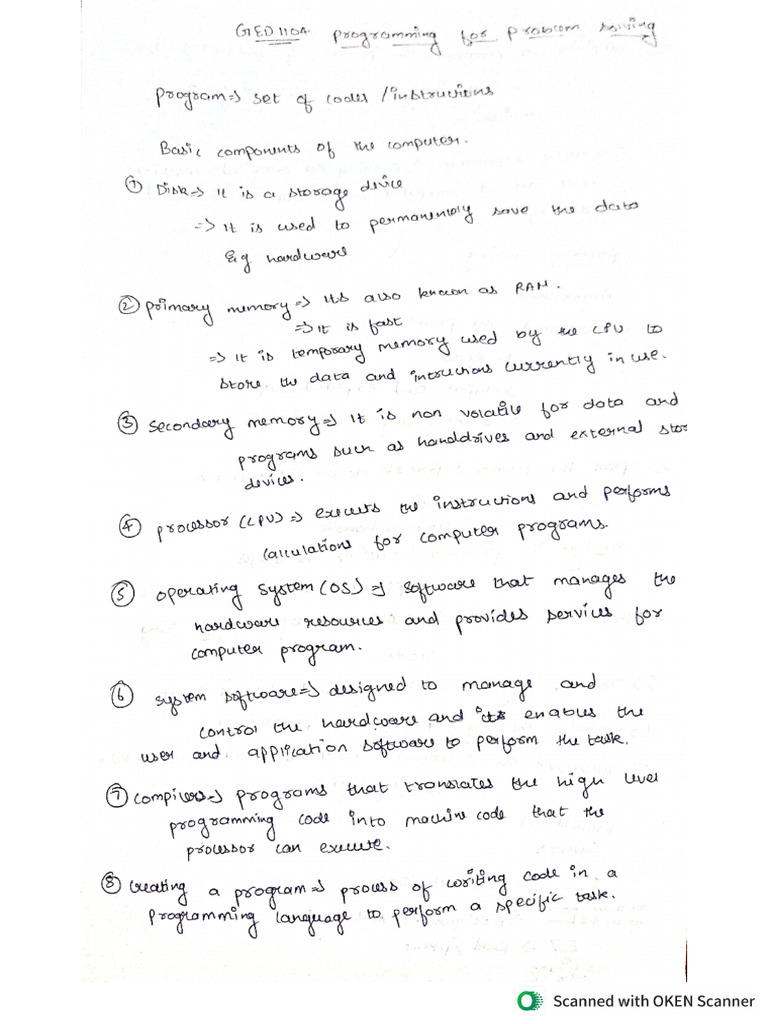 GED110A programming for problem solving
program=> set of codes /instructions
Basic components of the computer.
① Disk=> it is a storage device
=> It is used to permanently save the data
E.g hardware
② primary memory=> its also known as RAM.
=> it is fast
=> it is temporary memory used by the CPU to
store the data and intructions currently in use.
③ secondary memory=> it is non volatile for data and
programs such as harddrives and external stor
devices.
④ processor (CPU) => executs the instructions and performs
calculations for computer programs.
⑤ operating system (OS) => software that manages the
hardware resources and provides services for
computer program.
⑥ system software=> designed to manage and
control the hardware and its enables the
user and application software to perform the task.
⑦ compilers=> programs that translates the high level
programming code into machine code that the
processor can execute.
⑧ creating a program=> process of writing code in a
programming language to perform a specific task.
Scanned with OKEN Scanner